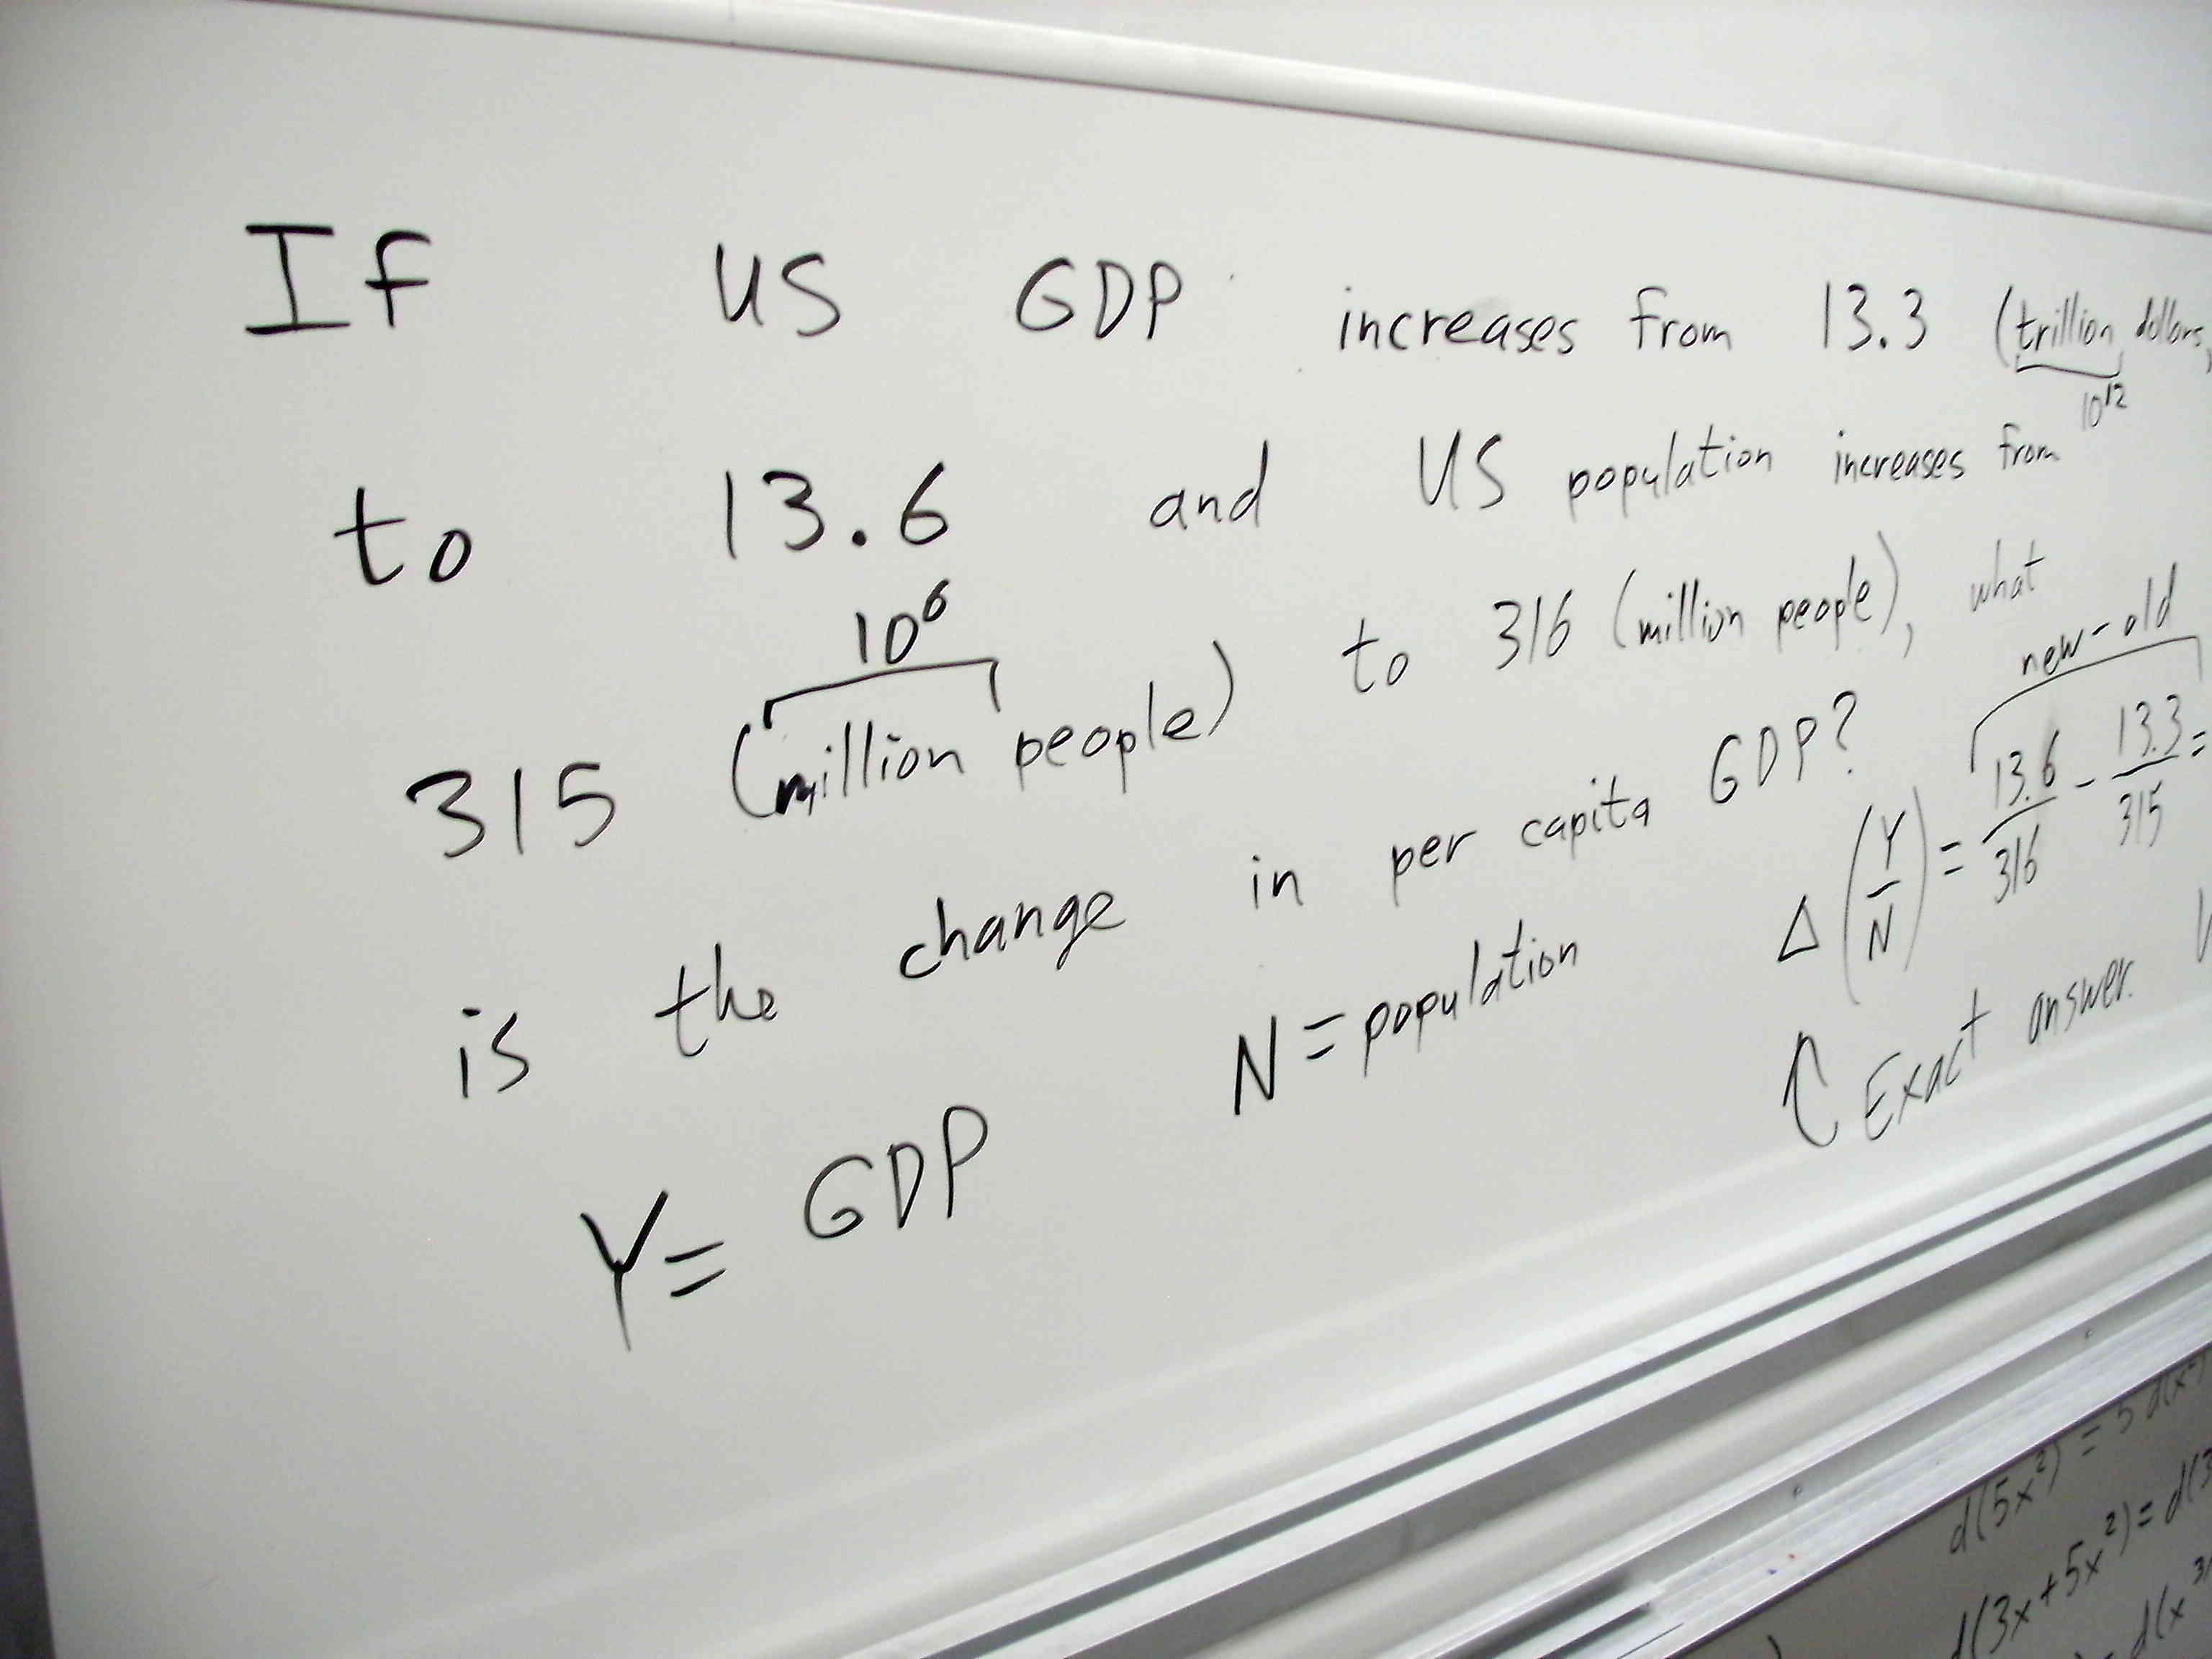 If US GDP increases from 13.3 (trillion dollars,
10¹²
to 13.6 and US population increases from
10⁶
315 (million people) to 316 (million people), what
is the change in per capita GDP?
new - old
Y = GDP N = population Δ(Y/N) = 13.6/316 - 13.3/315 =
Exact answer.
d(5x²) = 5 d(x²)
d(3x+5x²) = d(3